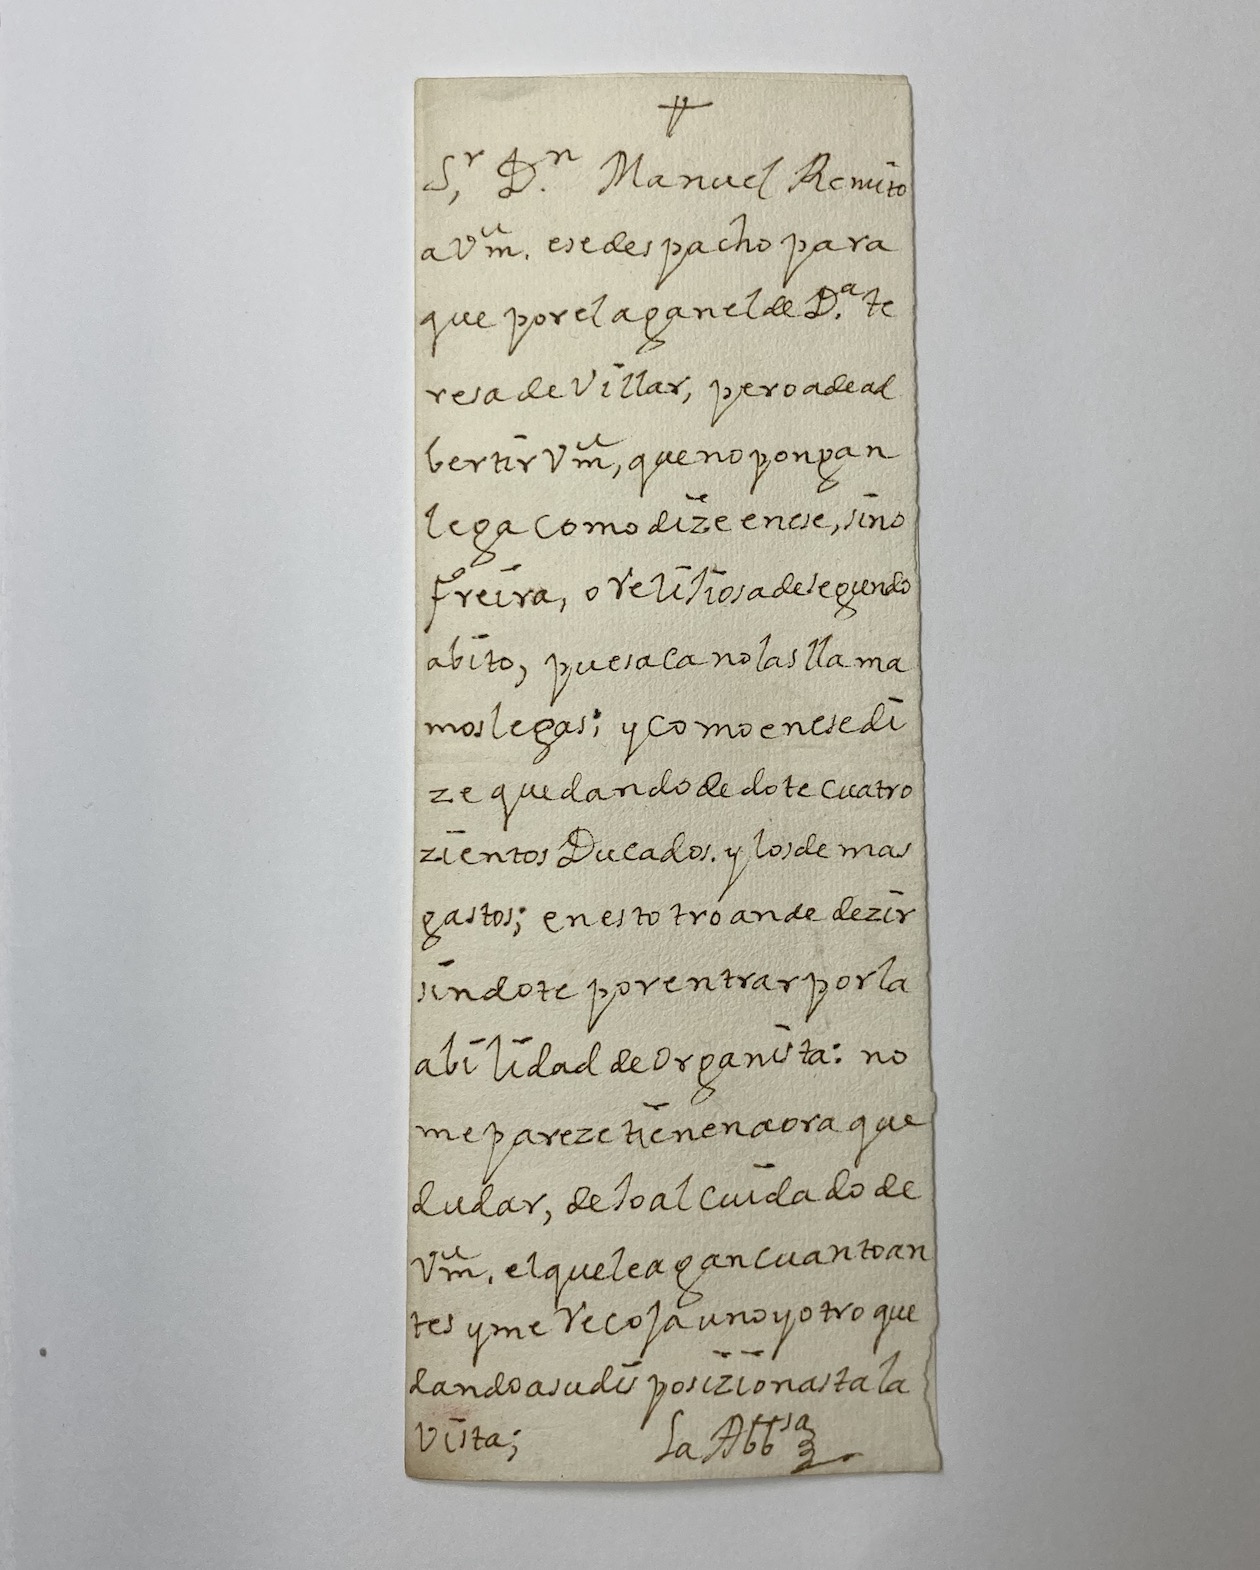 S.r D.n Manuel Remito
a Vm. ese despacho para
que por el agan el de D.a te
resa de Villar, pero a de ad
bertir Vm, que no pongan
lega como dize en ese, sino
freira, o relijiosa de segundo
abito, pues aca no las llama
mos legas; y como en ese di
ze quedando de dote cuatro
zientos Ducados. y los demas
gastos; en estotro an de dezir
sin dote por entrar por la
abilidad de Organista: no
me pareze tienen aora que
dudar, delo al cuidado de
Vm. el que le agan cuanto an
tes y me recoja uno y otro que
dando a su disposizion asta la
vista; La Abb.sa